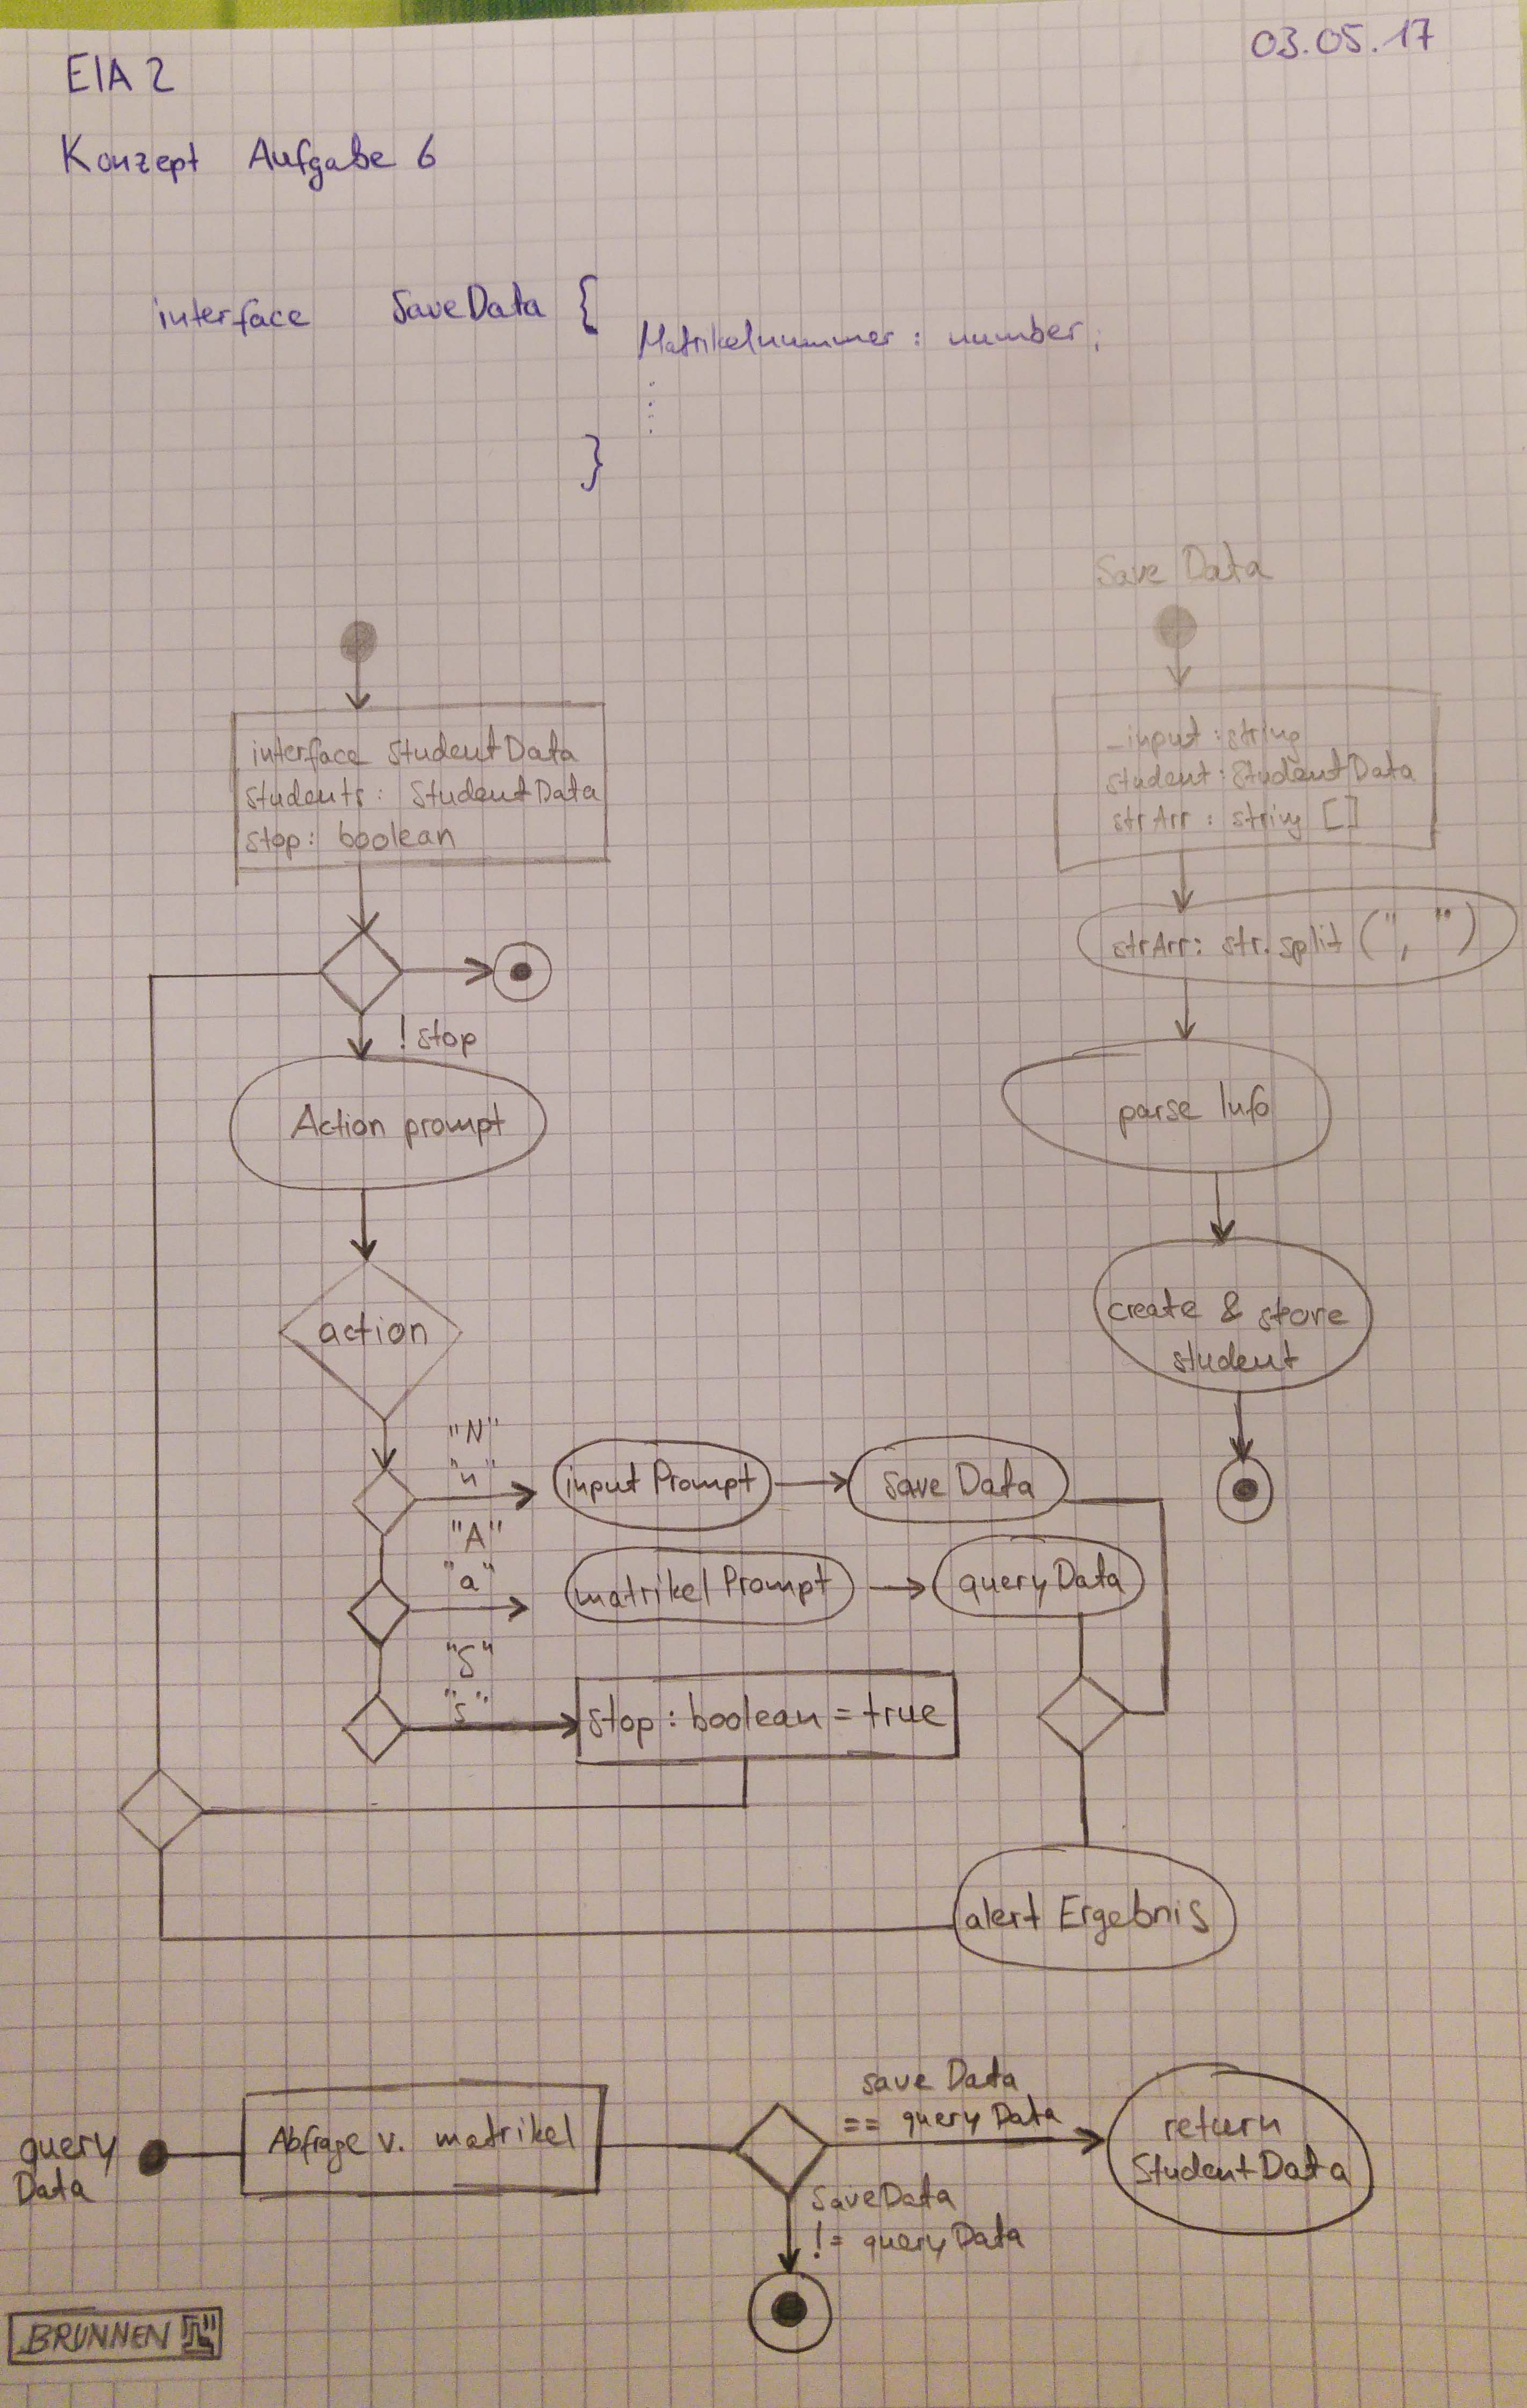 EIA 2
03.05.17
Konzept Aufgabe 6
interface SaveData {
Matrikelnummer : number;
}
interface StudentData
students : StudentData
stop : boolean
! stop
Action prompt
action
"N"
"n"
input Prompt
save Data
"A"
"a"
matrikel Prompt
query Data
"S"
"s"
stop : boolean = true
alert Ergebnis
Save Data
_input : string
student : StudentData
strArr : string []
strArr: str.split (", ")
parse Info
create & store
student
query
Data
Abfrage v. matrikel
save Data
== query Data
return
StudentData
SaveData
!= query Data
BRUNNEN